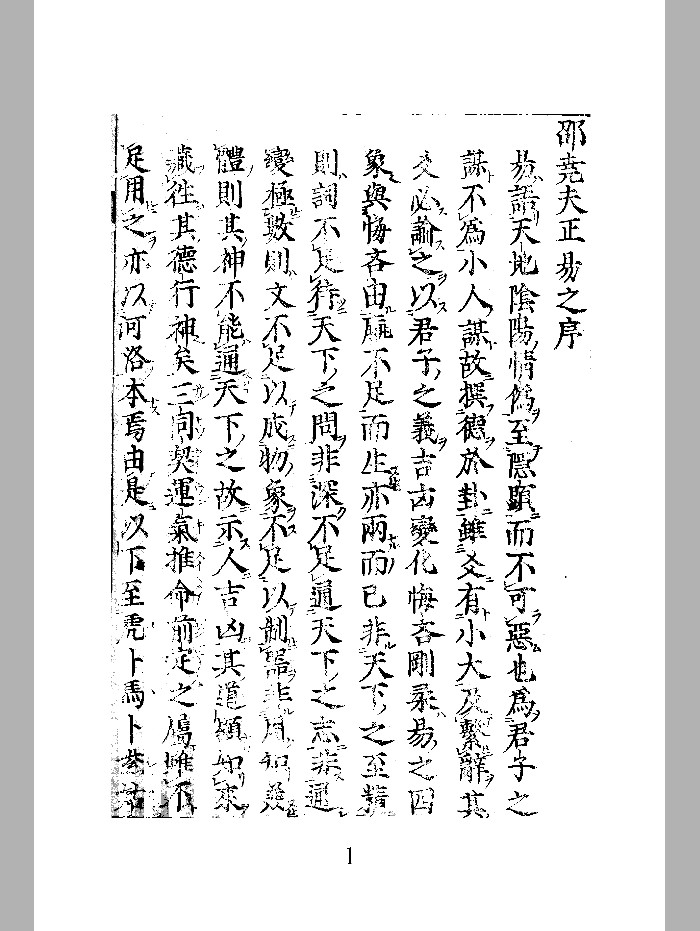 邵堯夫正易之序
易語天地陰陽情僞至隱顯而不可惡也爲君子之
謀不爲小人謀故撰德於卦雖爻有小大及繫辭其
爻必諭之以君子之義吉凶變化悔吝剛柔易之四
象與悔吝由羸不足而生亦兩而已非天下之至精
則詞不足待天下之問非深不足通天下之志非通
變極數則文不足以成物象不足以制器非周知兼
體則其神不能通天下之故示人吉凶其道顯知來
藏往其德行神矣三同契運氣推命前定之屬雖不
足用之亦以河洛本焉由是以下至虎卜馬卜
1